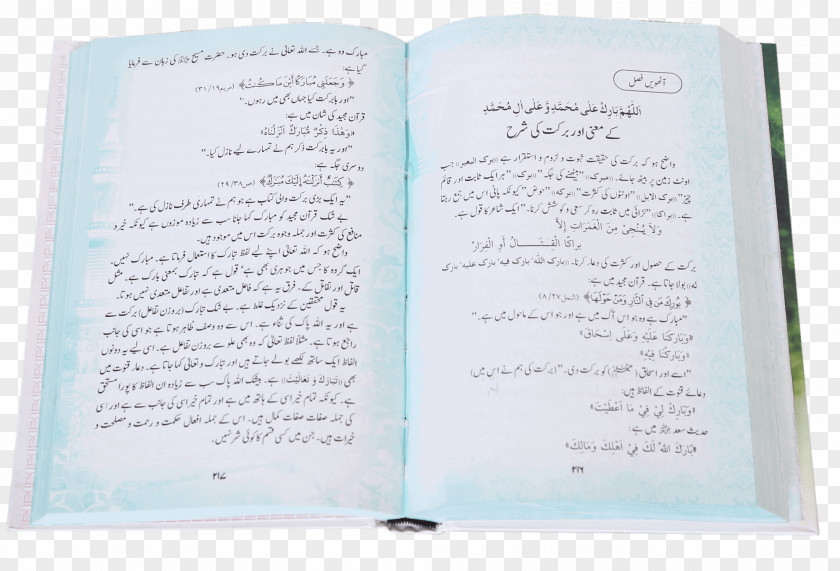 آٹھویں فصل
اَللّٰهُمَّ بَارِكْ عَلٰى مُحَمَّدٍ وَّ عَلٰى اٰلِ مُحَمَّدٍ
کے معنی اور برکت کی شرح
واضح ہو کہ برکت کی حقیقت ثبوت و لزوم و استقرار ہے ((برک البعیر)) جب
اونٹ زمین پر بیٹھ جائے۔ ((مبرک)) ”بیٹھنے کی جگہ“ ((برک)) ”ہر ایک ثابت اور قائم
چیز“ ((برک الابل)) ”اونٹوں کی کثرت“ ((برکہ)) ”حوض“ کیونکہ پانی اس میں جمع رہتا
ہے۔ ((براکاء)) ”لڑائی میں ثابت رہ کر سعی و کوشش کرنا۔“ ایک شاعر کا قول ہے۔
وَلَا يُنْجِيْ مِنَ الْغَمَرَاتِ اِلَّا
بَرَاكَا الْقِتَالُ أَوِ الْفِرَارُ
برکت کے حصول اور کثرت کی دعا کرنا۔ ((بارک اللّٰہ، بارک فیہ، بارک علیہ، بارک
لہ)) بولا جاتا ہے۔ قرآن مجید میں ہے:
﴿بُوْرِكَ مَنْ فِي النَّارِ وَمَنْ حَوْلَهَا﴾ (النمل ۸/۲۷)
”مبارک ہے وہ جو اس آگ میں ہے اور جو اس کے ماحول میں ہے۔“
«وَبَارَكْنَا عَلَيْهِ وَعَلٰى اِسْحَاقَ»
«وَبَارَكْنَا فِيْهِ»
”اسے اور اسحاق () کو برکت دی۔“ (برکت کی ہم نے اس میں)
دعائے قنوت کے الفاظ ہیں:
«وَبَارِكْ لِيْ فِيْ مَا اَعْطَيْتَ»
حدیث سعد میں ہے:
«بَارَكَ اللّٰهُ لَكَ فِيْ اَهْلِكَ وَمَالِكَ»
۲۱۶
مبارک وہ ہے۔ جسے اللہ تعالیٰ نے برکت دی ہو۔ حضرت مسیح کی زبان سے فرمایا
گیا ہے:
﴿وَجَعَلَنِيْ مُبَارَكًا اَيْنَ مَا كُنْتُ﴾ (مریم ۳۱/۱۹)
”اور بابرکت کیا جہاں بھی میں رہوں۔“
قرآن مجید کی شان میں ہے:
«وَهٰذَا ذِكْرٌ مُّبَارَكٌ اَنْزَلْنَاهُ»
”اور یہ بابرکت ذکر ہم نے تمہارے لیے نازل کیا۔“
دوسری جگہ ہے:
﴿كِتٰبٌ اَنْزَلْنٰهُ اِلَيْكَ مُبٰرَكٌ﴾ (ص ۲۹/۳۸)
”یہ ایک بڑی برکت والی کتاب ہے جو ہم نے تمہاری طرف نازل کی ہے۔“
بے شک قرآن مجید کو مبارک کہا جانا سب سے زیادہ موزوں ہے کیونکہ خیر و
منافع کی کثرت اور جملہ وجوہ برکت اس میں موجود ہیں۔
واضح ہو کہ اللہ تعالیٰ اپنے لیے لفظ تبارک کا استعمال فرماتا ہے۔ مبارک نہیں۔
ایک گروہ کا جس میں جوہری بھی ہے‘ قول ہے کہ تبارک بمعنی بارک ہے۔ مثل
قاتل اور تقاتل کے۔ فرق یہ ہے کہ فاعل متعدی ہے اور تفاعل متعدی نہیں ہوتا۔
یہ قول محققین کے نزدیک غلط ہے۔ بے شک تبارک (بروزن تفاعل) برکت سے
ہے اور یہ اللہ پاک کی ثناء ہے۔ اس سے وہ وصف ظاہر ہوتا ہے جو اسی کی جانب
راجع ہوتا ہے۔ مثلاً لفظ تعالیٰ کہ وہ بھی علو سے بروزن تفاعل ہے۔ اسی لیے یہ دونوں
الفاظ ایک ساتھ لکھے بولے جاتے ہیں اور تبارک و تعالیٰ کہا جاتا ہے۔ دعاء قنوت میں
بھی ((تَبَارَكْتَ وَ تَعَالَيْتَ)) ہے۔ بیشک اللہ پاک سب سے زیادہ ان الفاظ کا پورا مستحق
ہے۔ کیونکہ تمام خیر اسی کے ہاتھ میں ہے اور تمام خیر اسی کی جانب سے ہے اور اسی
کی جملہ صفات صفات کمال ہیں۔ اس کے جملہ افعال حکمت و رحمت و مصلحت و
خیرات ہیں۔ جن میں کسی قسم کا کوئی شر نہیں۔
۲۱۷